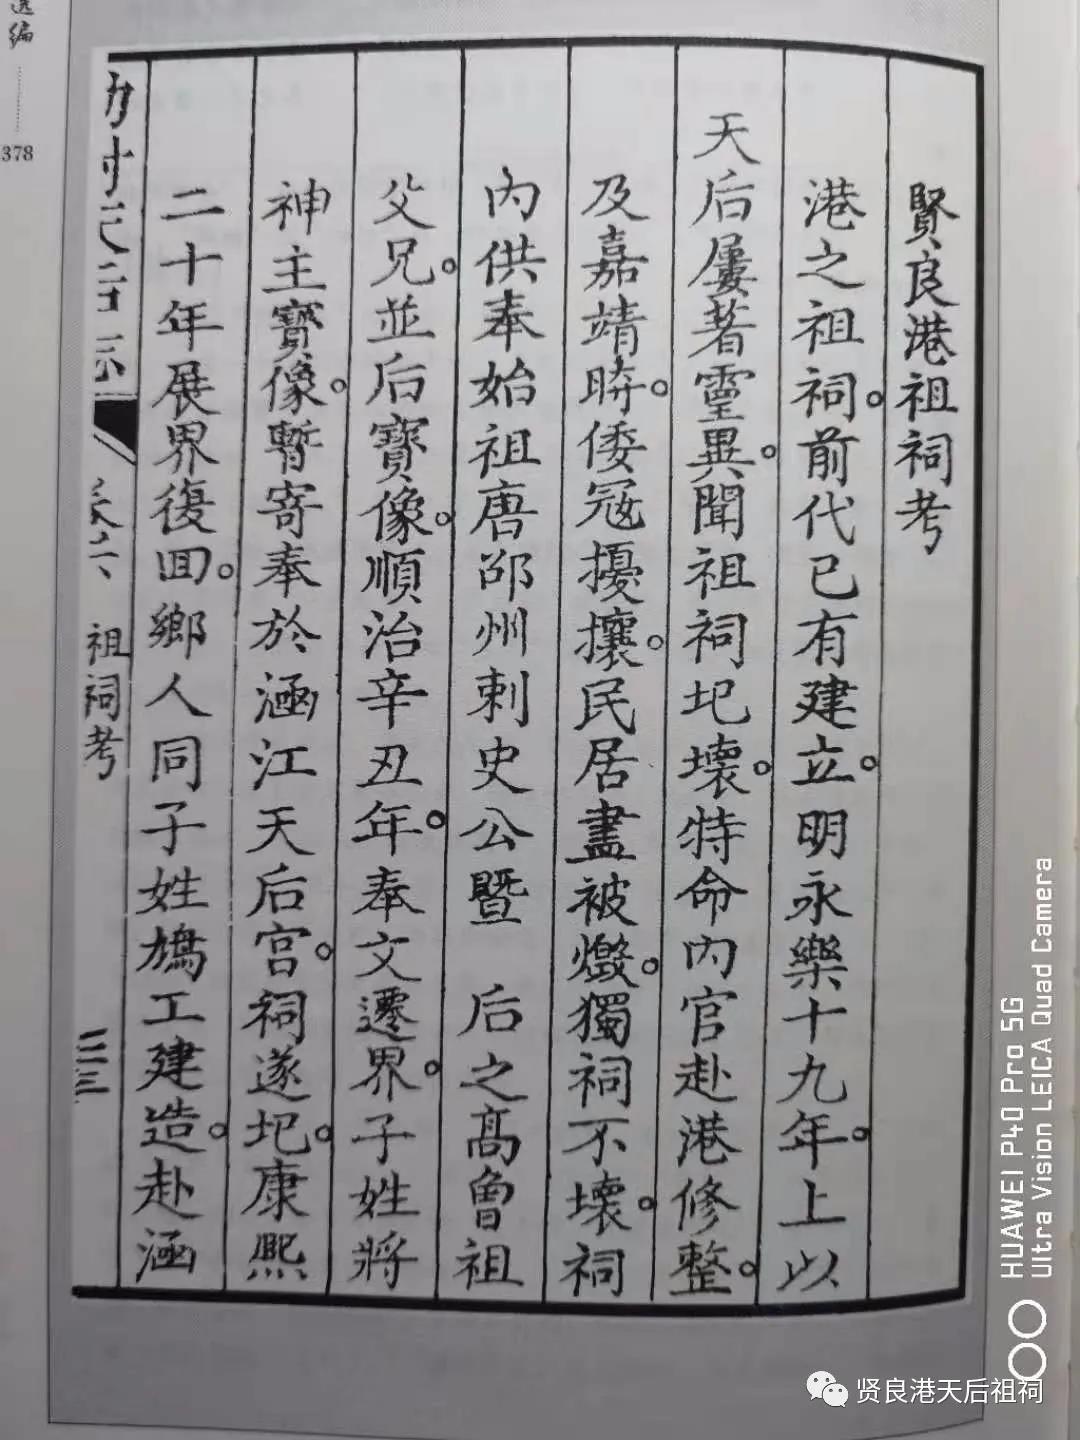 賢良港祖祠考
港之祖祠前代已有建立明永樂十九年上以
天后屢著靈異聞祖祠圮壞特命內官赴港修整
及嘉靖時倭冦擾攘民居盡被燬獨祠不壞祠
內供奉始祖唐邵州刺史公暨 后之高曾祖
父兄並后寶像順治辛丑年奉文遷界子姓將
神主寶像暫寄奉於涵江天后宮祠遂圮康熙
二十年展界復回鄉人同子姓鳩工建造赴涵
祖祠考
三三
选编
378
HUAWEI P40 Pro 5G
Ultra Vision LEICA Quad Camera
贤良港天后祖祠